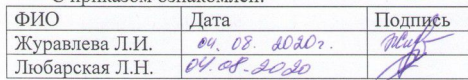 С приказом ознакомлен:
ФИО Дата Подпись
Журавлева Л.И. 04. 08. 2020г.
Любарская Л.Н. 04.08.2020